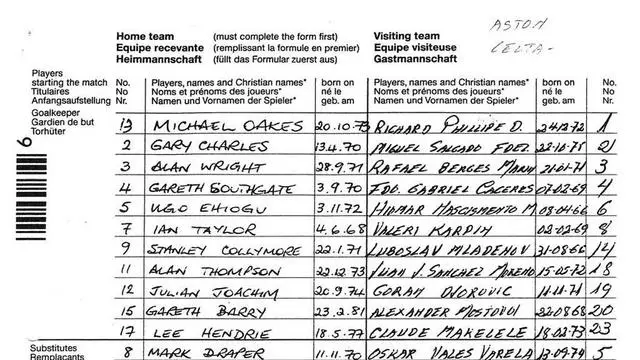 ASTON
CELTA-
Home team (must complete the form first) Visiting team
Equipe recevante (remplissant la formule en premier) Equipe visiteuse
Heimmannschaft (füllt das Formular zuerst aus) Gastmannschaft
Players starting the match No. Players, names and Christian names* born on Players, names and Christian names* born on No.
Titulaires No Noms et prénoms des joueurs* né le Noms et prénoms des joueurs* né le No
Anfangsaufstellung Nr. Namen und Vornamen der Spieler* geb. am Namen und Vornamen der Spieler* geb. am Nr.
Goalkeeper
Gardien de but
Torhüter
13 MICHAEL OAKES 20.10.73 RICHARD PHILLIPE D. 24.12.72 1
2 GARY CHARLES 13.4.70 MIGUEL SALGADO FDEZ. 22-10-75 2
3 ALAN WRIGHT 28.9.71 RAFAEL BERGES MARIN 21-01-71 3
4 GARETH SOUTHGATE 3.9.70 FDO. GABRIEL CACERES 07-02-69 4
5 UGO EHIOGU 3.11.72 08-04-66 6
7 IAN TAYLOR 4.6.68 VALERI KARPIN 02-02-69 8
9 STANLEY COLLYMORE 22.1.71 LUBOSLAV MLADENOV 31-08-66 14
11 ALAN THOMPSON 22.12.73 JUAN J. SANCHEZ MORENO 15-05-72 18
12 JULIAN JOACHIM 20.9.74 GORAN 19
15 GARETH BARRY 23.2.81 ALEXANDER MOSTOVOI 22-08-68 20
17 LEE HENDRIE 18.5.77 CLAUDE MAKELELE 18-02-73 23
Substitutes
Remplaçants
8 MARK DRAPER 11.11.70 OSKAR VALES VARELA 13-09-74 5
9